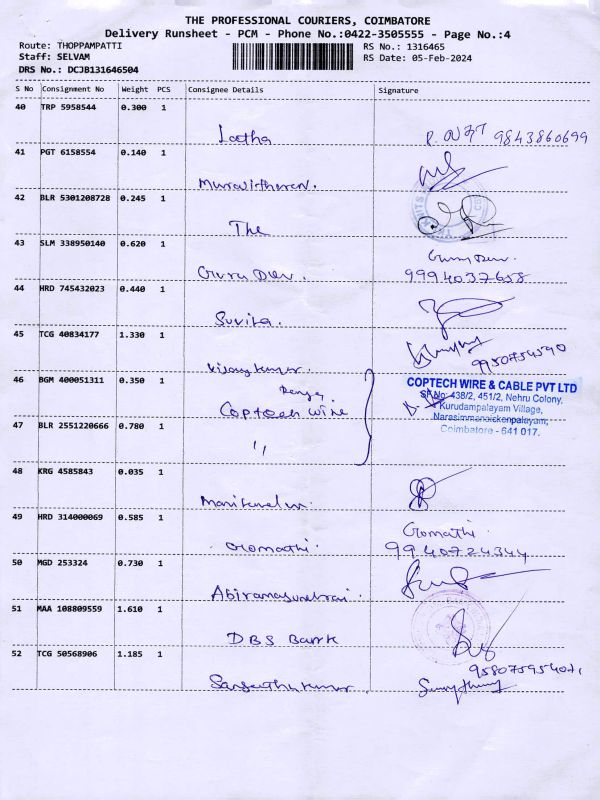 THE PROFESSIONAL COURIERS, COIMBATORE
Delivery Runsheet - PCM - Phone No.:0422-3505555 - Page No.:4
Route: THOPPAMPATTI
RS No.: 1316465
Staff: SELVAM
RS Date: 05-Feb-2024
DRS No.: DCJB131646504
S No Consignment No Weight PCS Consignee Details Signature
40 TRP 5958544 0.300 1
Latha 9843860699
41 PGT 6158554 0.140 1
42 BLR 5301208728 0.245 1
The
43 SLM 338950140 0.620 1
Guru Dev.
Guru Dev.
9994037658
44 HRD 745432023 0.440 1
45 TCG 40834177 1.330 1
Vijay Kumar. 9950754590
46 BGM 400051311 0.350 1
Coptech Wire
COPTECH WIRE & CABLE PVT LTD
SF.No: 438/2, 451/2, Nehru Colony,
Kurudampalayam Village,
Narasimmanaickenpalayam,
Coimbatore - 641 017.
47 BLR 2551220666 0.780 1
"
48 KRG 4585843 0.035 1
49 HRD 314000069 0.585 1
Gomathi.
Gomathi.
9940724344
50 MGD 253324 0.730 1
51 MAA 108809559 1.610 1
DBS Bank
52 TCG 50568906 1.185 1